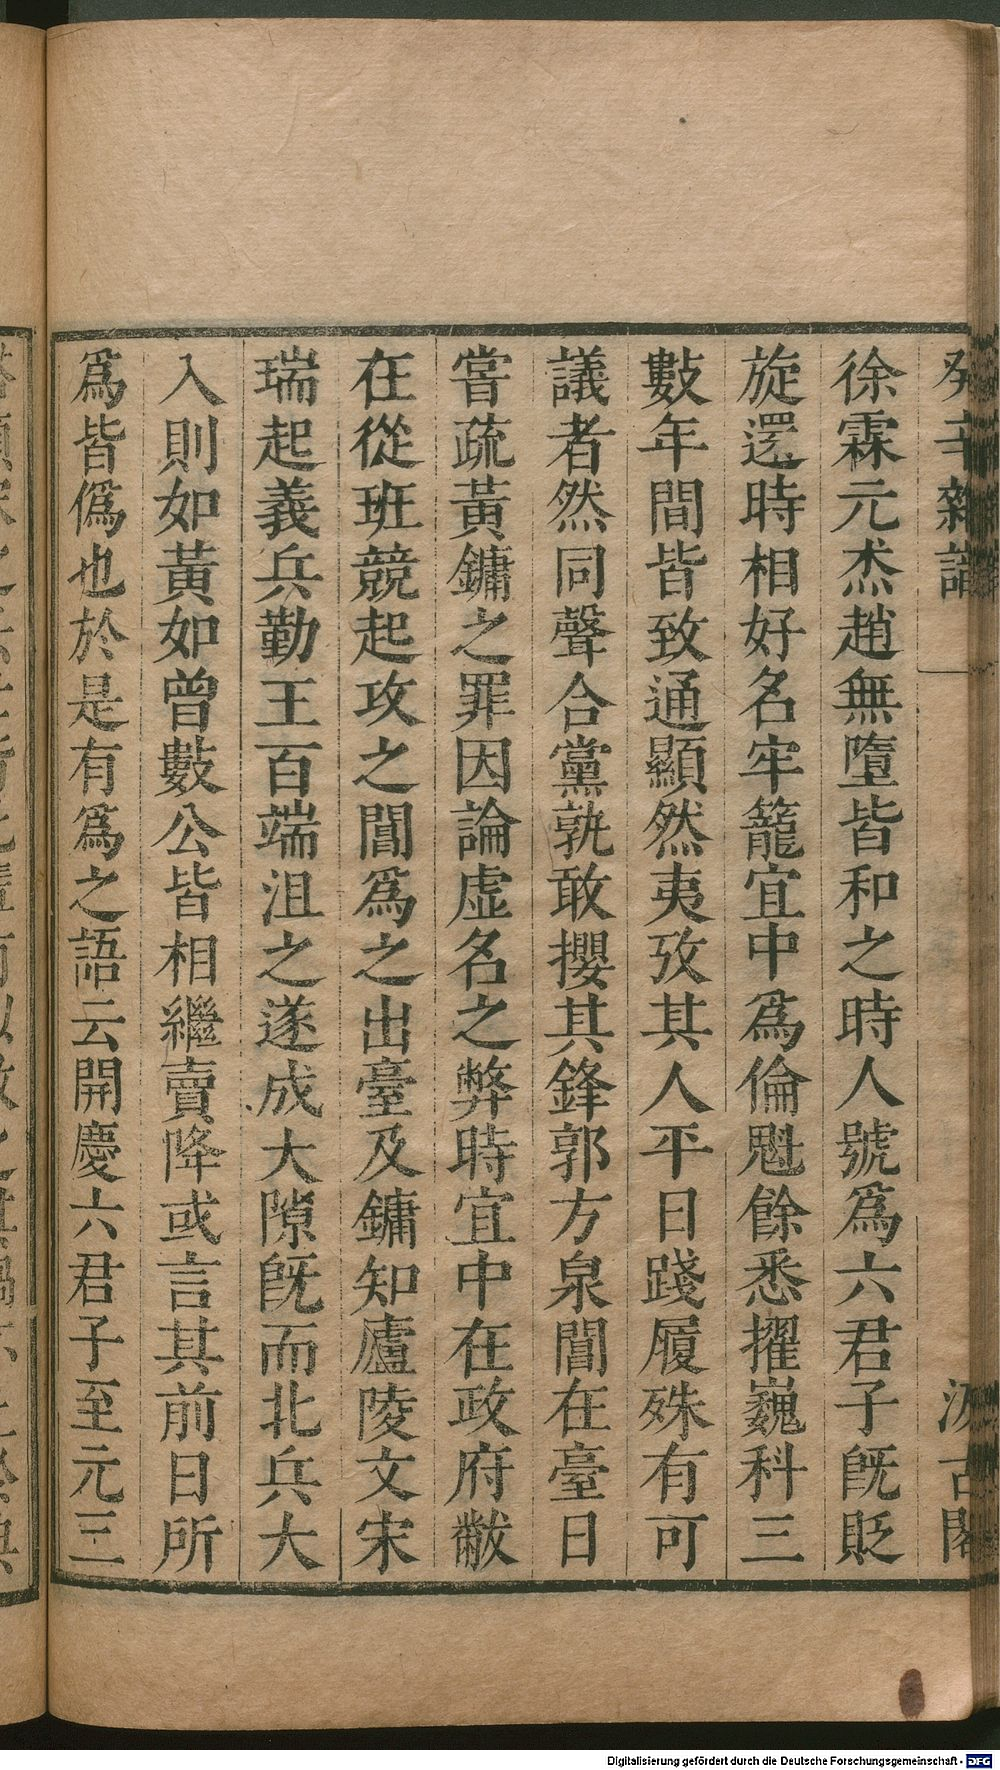 癸辛雜識
汲古閣
徐霖元杰趙無墮皆和之時人號為六君子旣貶
旋還時相好名牢籠宜中爲倫魁餘悉擢巍科三
數年間皆致通顯然夷攷其人平日踐履殊有可
議者然同聲合黨孰敢攖其鋒郭方泉閶在臺日
嘗疏黃鏞之罪因論虛名之弊時宜中在政府黻
在從班競起攻之閶爲之出臺及鏞知廬陵文宋
瑞起義兵勤王百端沮之遂成大隙旣而北兵大
入則如黃如曾數公皆相繼賣降或言其前日所
爲皆僞也於是有爲之語云開慶六君子至元三
Digitalisierung gefördert durch die Deutsche Forschungsgemeinschaft - DFG